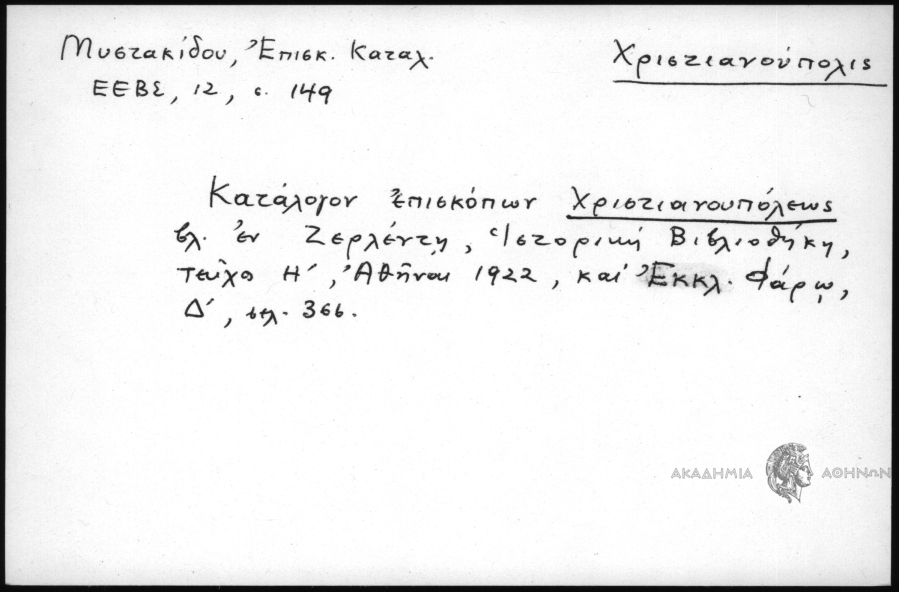 Μυστακίδου, Ἐπισκ. Καταλ.
ΕΕΒΣ, 12, σ. 149
Χριστιανούπολις
Κατάλογον ἐπισκόπων Χριστιανουπόλεως
βλ. ἐν Ζερλέντῃ, Ἱστορική Βιβλιοθήκη,
τεῦχο Η´, Ἀθῆναι 1922, καί Ἐκκλ. Φάρῳ,
Δ´, σελ. 366.
ΑΚΑΔΗΜΙΑ ΑΘΗΝΩΝ